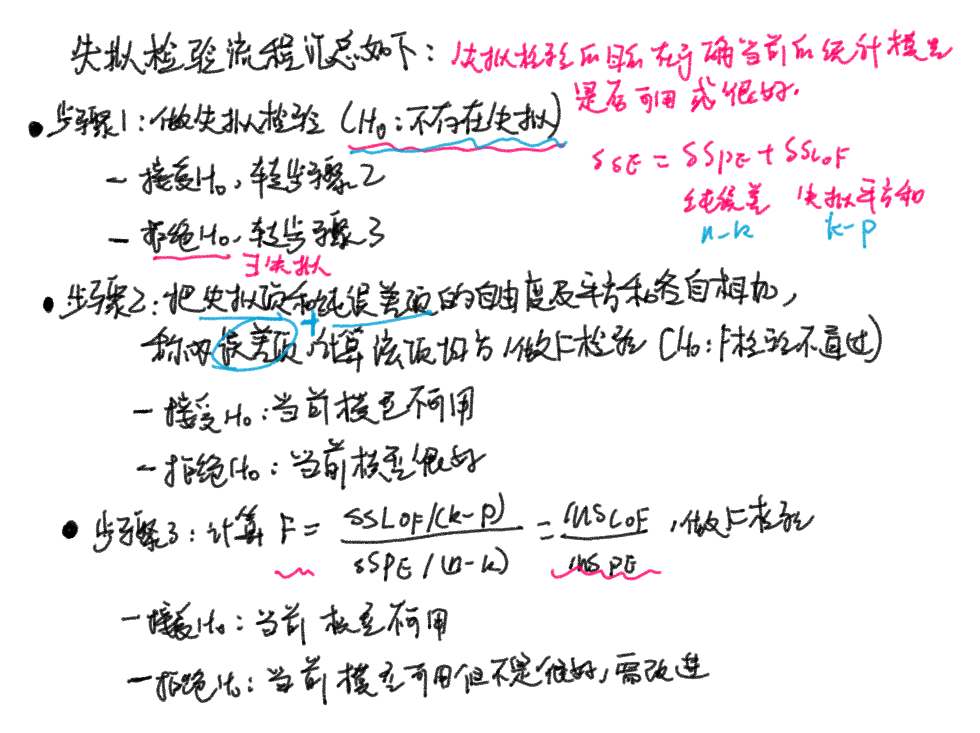 失拟检验流程汇总如下：
失拟检验的目的在于确当前的统计模型
是否可用或很好.
• 步骤1：做失拟检验（H₀：不存在失拟）
- 接受H₀，转步骤2
- 拒绝H₀，转步骤3
∃失拟
SSE = SSPE + SSLOF
纯误差 失拟平方和
n-k k-p
• 步骤2：把失拟项和纯误差项的自由度及平方和各自相加，
+
称为误差项，计算该项均方，做F检验（H₀：F检验不通过）
- 接受H₀：当前模型不可用
- 拒绝H₀：当前模型很好
• 步骤3：计算 F = SSLOF/(k-p) / SSPE/(n-k) = MSLOF / MSPE，做F检验
- 接受H₀：当前模型不可用
- 拒绝H₀：当前模型可用但不是很好，需改进